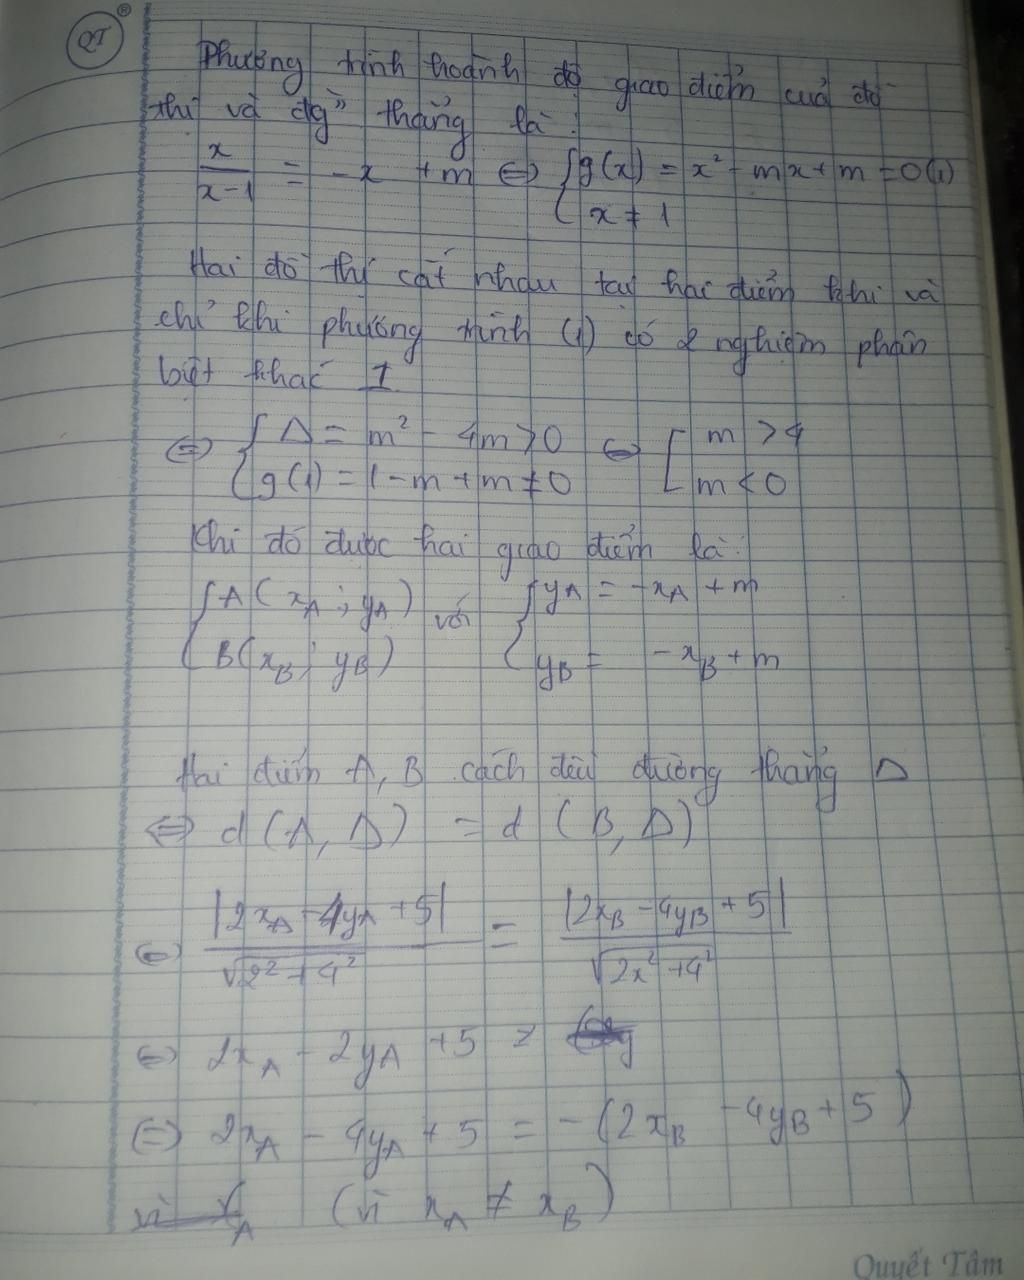 QT ®
Phương trình hoành độ giao điểm cuả đồ
thị và đg thẳng là :
x/(x-1) = -x +m ⇔ { g(x) = x² - mx + m = 0 (1)
x ≠ 1
Hai đồ thị cắt nhau tại hai điểm khi và
chỉ khi phương trình (1) có 2 nghiệm phân
biệt khác 1
⇔ { Δ = m² - 4m > 0 ⇔ [ m > 4
g(1) = 1 - m + m ≠ 0 m < 0
Khi đó được hai giao điểm là:
{ A( x_A ; y_A ) với { y_A = -x_A + m
B( x_B ; y_B ) y_B = -x_B + m
Hai điểm A, B cách đều đường thẳng Δ
⇔ d (A, Δ) = d (B, Δ)
⇔ |2x_A - 4y_A + 5| / √(2² + 4²) = |2x_B - 4y_B + 5| / √(2x² + 4²)
⇔ 2x_A - 2y_A + 5 =
⇔ 2x_A - 4y_A + 5 = -(2x_B - 4y_B + 5)
vì x_A (vì x_A ≠ x_B)
Quyết Tâm